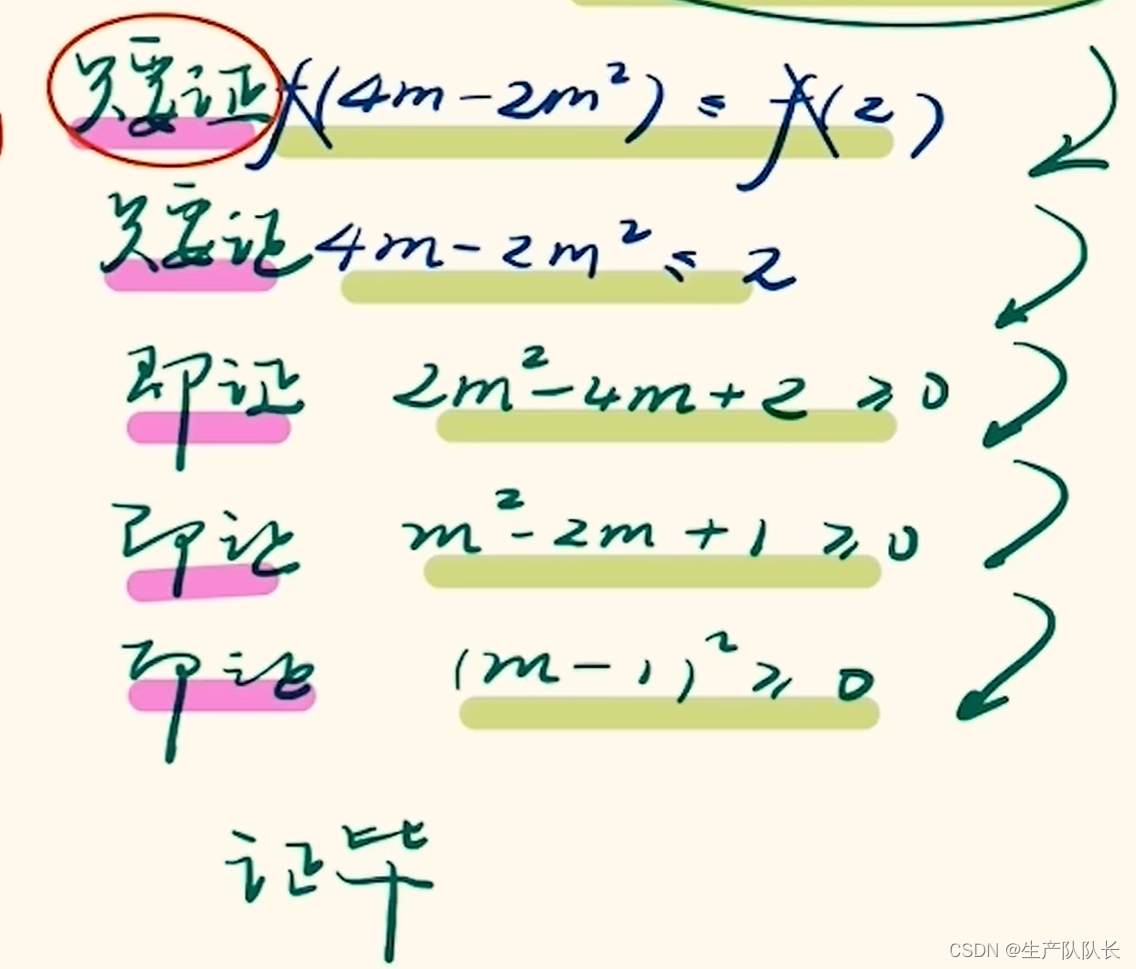 只要证 f(4m-2m²) ≤ f(2)
只要证 4m-2m² ≤ 2
即证 2m²-4m+2 ≥ 0
即证 m²-2m+1 ≥ 0
即证 (m-1)² ≥ 0
证毕
CSDN @生产队队长